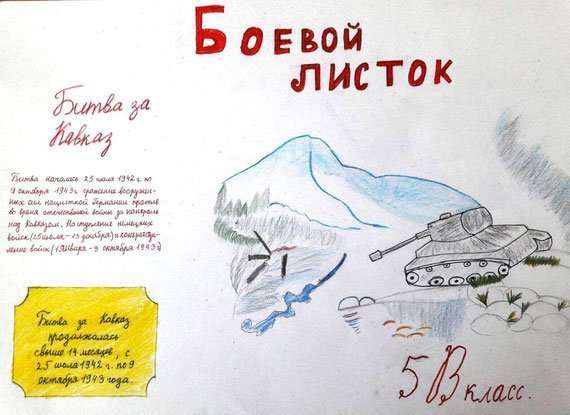 БОЕВОЙ
ЛИСТОК
Битва за
Кавказ
Битва началась 25 июля 1942 г. по
9 октября 1943 г. сражение вооружон-
ных сил нацисткой Германии против
во время отечественной войны за контроль
над Кавказом. Наступление немецких
войск (25 июля - 19 декабря) и контрнаступ-
ление войск (1 Января - 9 октября 1943 г.)
Битва за Кавказ
продолжалась
свыше 14 месяцев, с
25 июля 1942 г. по 9
октября 1943 года.
5 В класс.